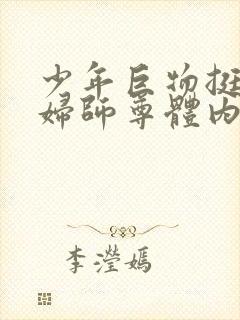 少年巨物挺
婦師尊體內
李瀅嫣